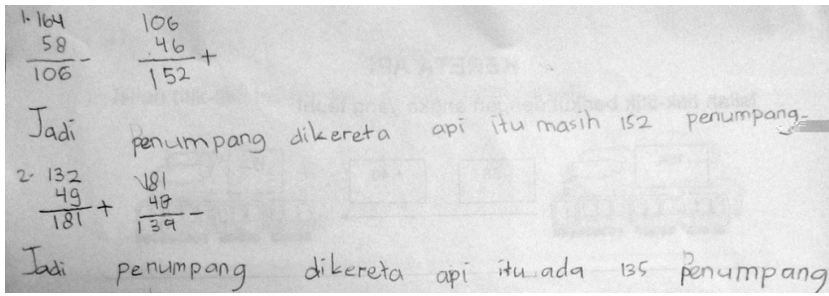 1. 164 106
58 - 46 +
106 152
Jadi penumpang dikereta api itu masih 152 penumpang.
2. 132 181
49 + 48 -
181 139
Jadi penumpang dikereta api itu ada 135 penumpang